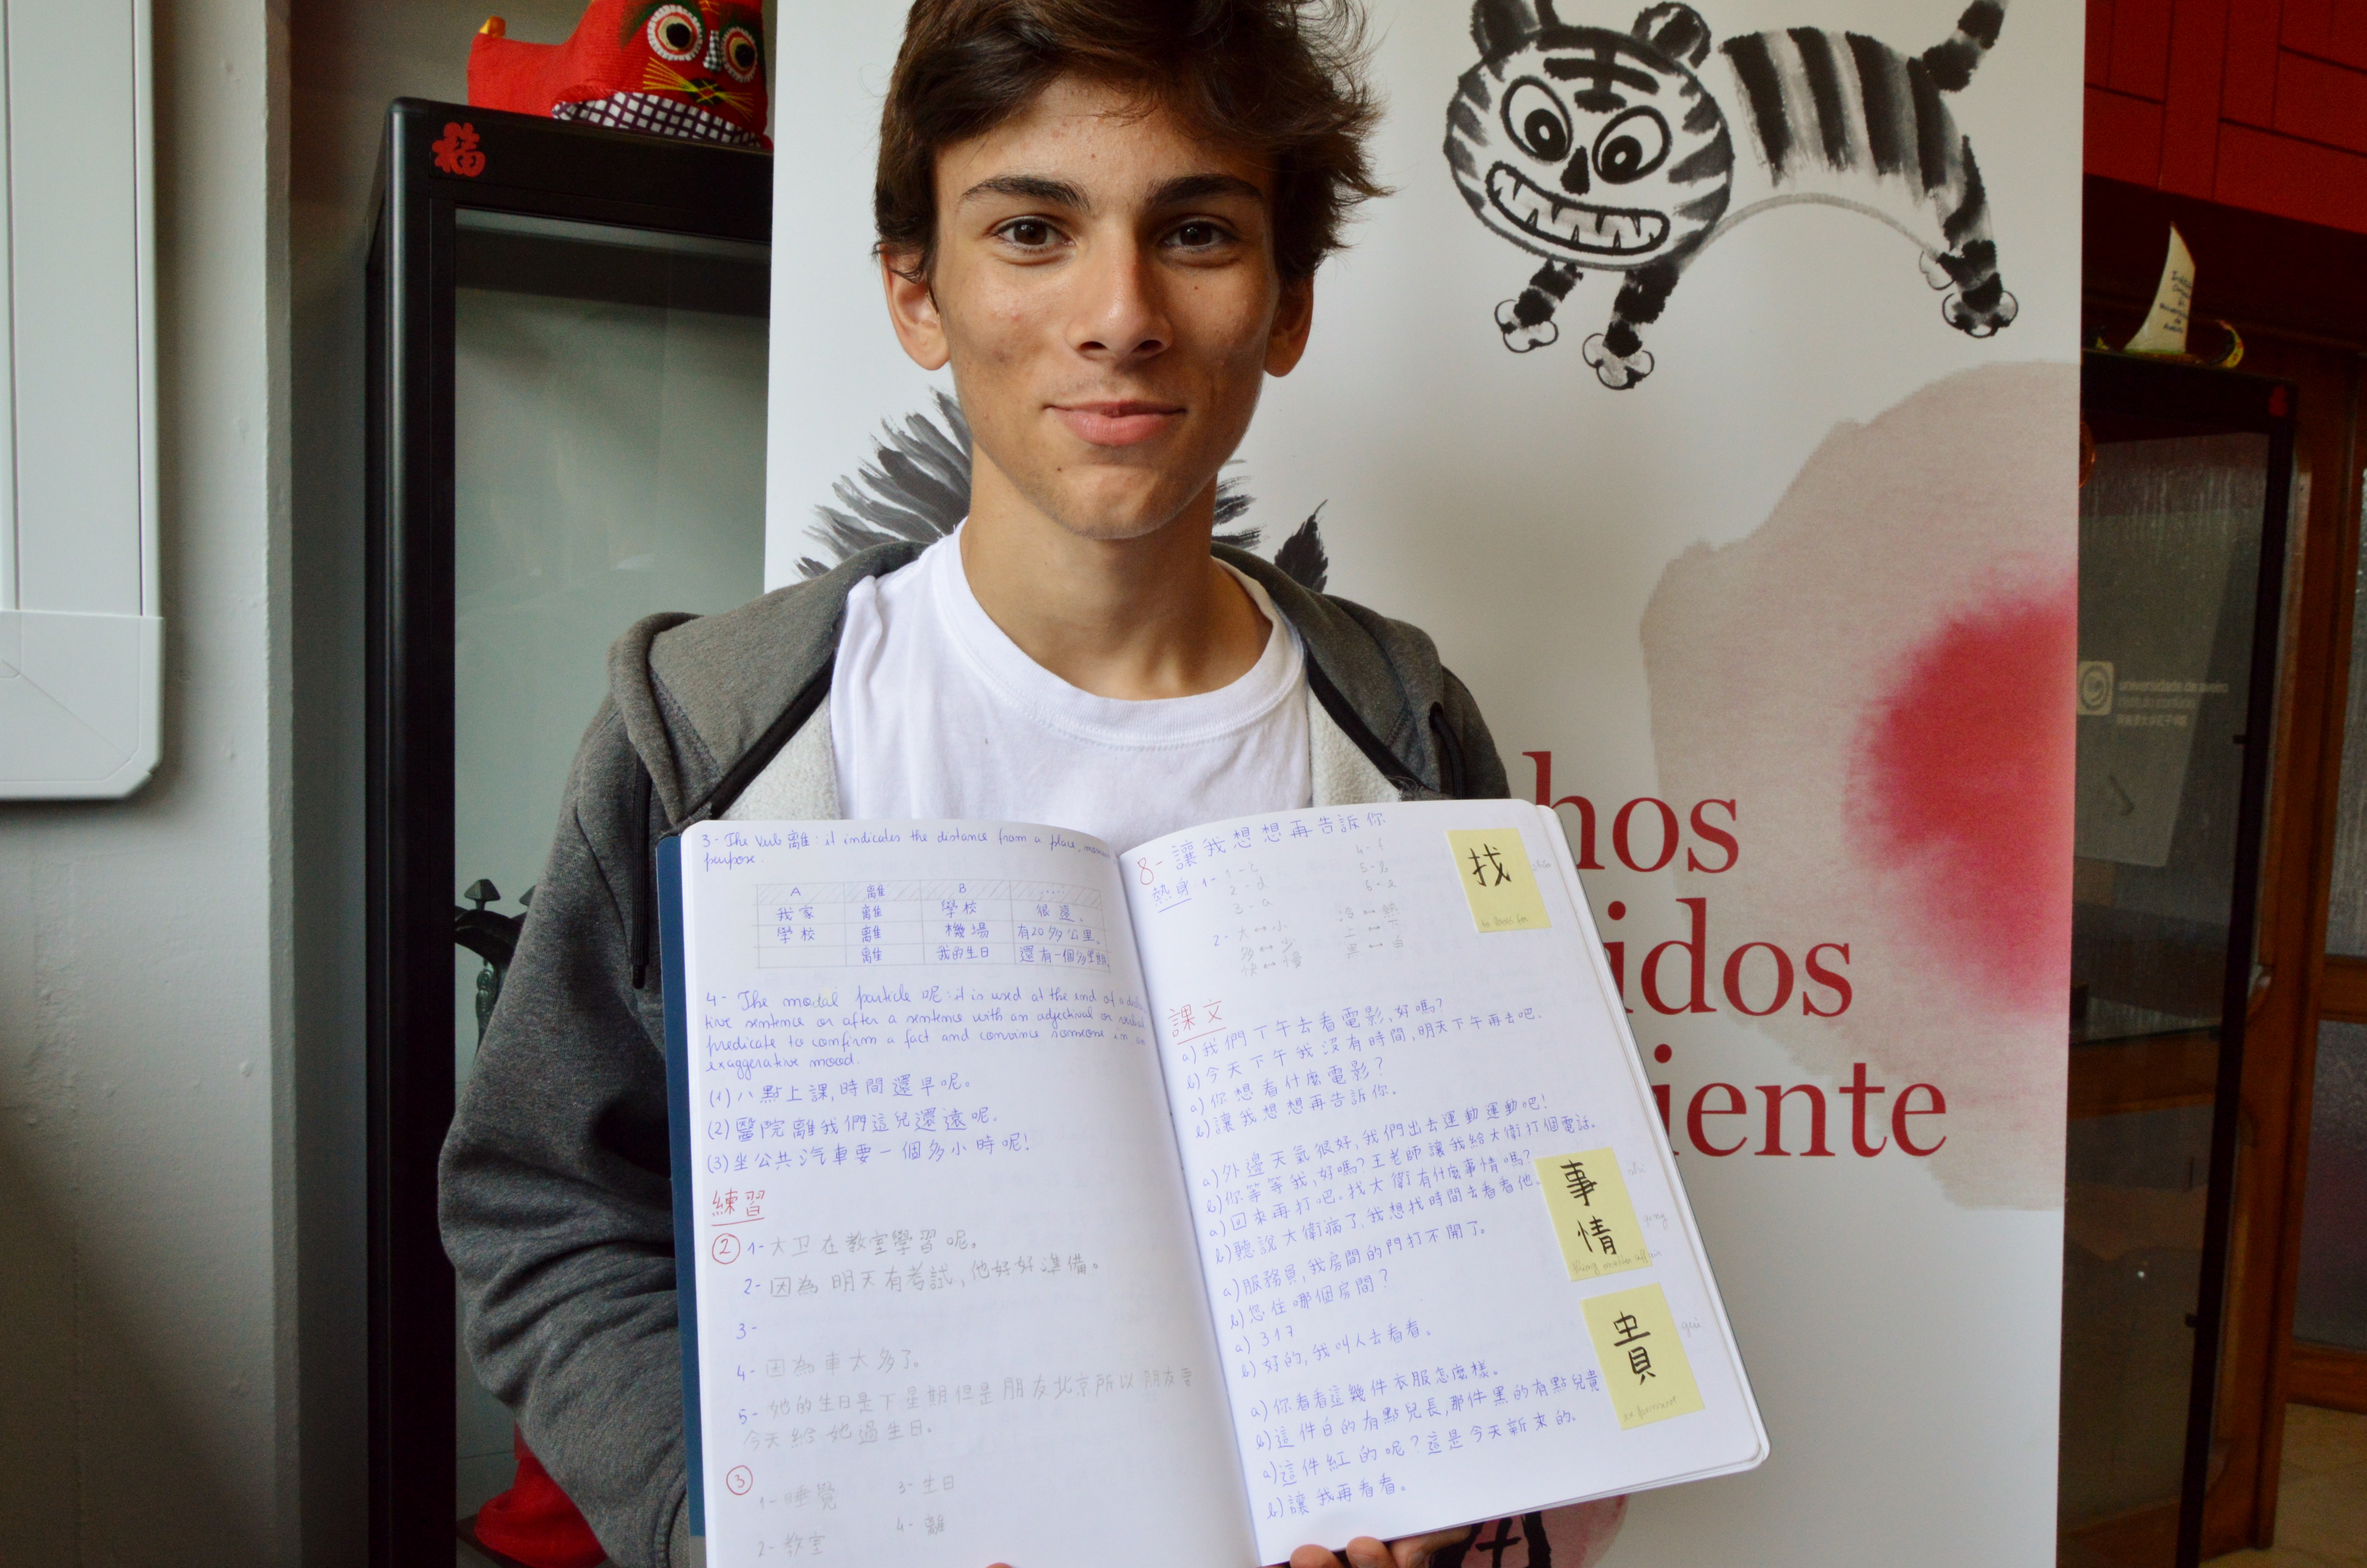 福
3- The verb 離: it indicates the distance from a place,
purpose.
A 離 B .....
我家 離 學校 很遠。
學校 離 機場 有20多公里。
離 我的生日 還有一個多星期。
4- The modal particle 呢: it is used at the end of a
tive sentence or after a sentence with an adjectival or
predicate to confirm a fact and convince someone in an
exaggerative mood.
(1) 八點上課,時間還早呢。
(2) 醫院離我們這兒還遠呢.
(3) 坐公共汽車要一個多小時呢!
練習
② 1- 大卫在教室學習呢。
2- 因為明天有考試,他好好準備。
3-
4- 因為車太多了。
5- 她的生日是下星期但是朋友北京所以朋友要
今天給她過生日。
③ 1- 睡覺 3- 生日
2- 教室 4- 離
8- 讓我想想再告訴你
熱身 1- 1-c 4-f
2-d 5-b
3-a 6-e
2- 大↔小 冷↔熱
多↔少
快↔慢 黑↔白
課文
a) 我們下午去看電影,好嗎?
b) 今天下午我沒有時間,明天下午再去吧.
a) 你想看什麼電影?
b) 讓我想想再告訴你.
a) 外邊天氣很好,我們出去運動運動吧!
b) 你等等我,好嗎?王老師讓我給大衛打個電話.
a) 回來再打吧.找大衛有什麼事情嗎?
b) 聽說大衛病了.我想找時間去看看他.
a) 服務員,我房間的門打不開了。
b) 您住哪個房間?
a) 317
b) 好的,我叫人去看看。
a) 你看看這幾件衣服怎麼樣。
b) 這件白的有點兒長,那件黑的有點兒貴
a) 這件紅的呢?這是今天新來的.
b) 讓我再看看。
找
to look for
事情
貴
guì
hos
idos
iente
universidade de aveiro
instituto confúcio